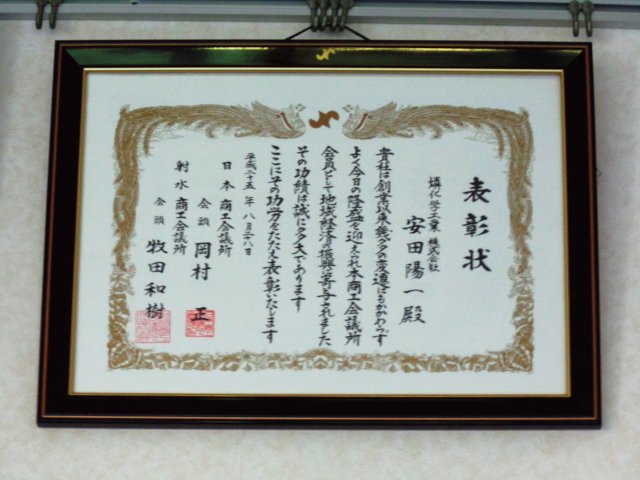 表彰状
燐化学工業 株式会社
安田陽一殿
貴社は創業以来幾多の変遷にもかかわらず
よく今日の隆盛を迎えられ本商工会議所
会員として地域経済の振興に寄与されました
その功績は誠に多大であります
ここにその功労をたたえ表彰いたします
平成二十五年 八月二八日
日本商工会議所
会頭 岡村 正
射水商工会議所
会頭 牧田和樹